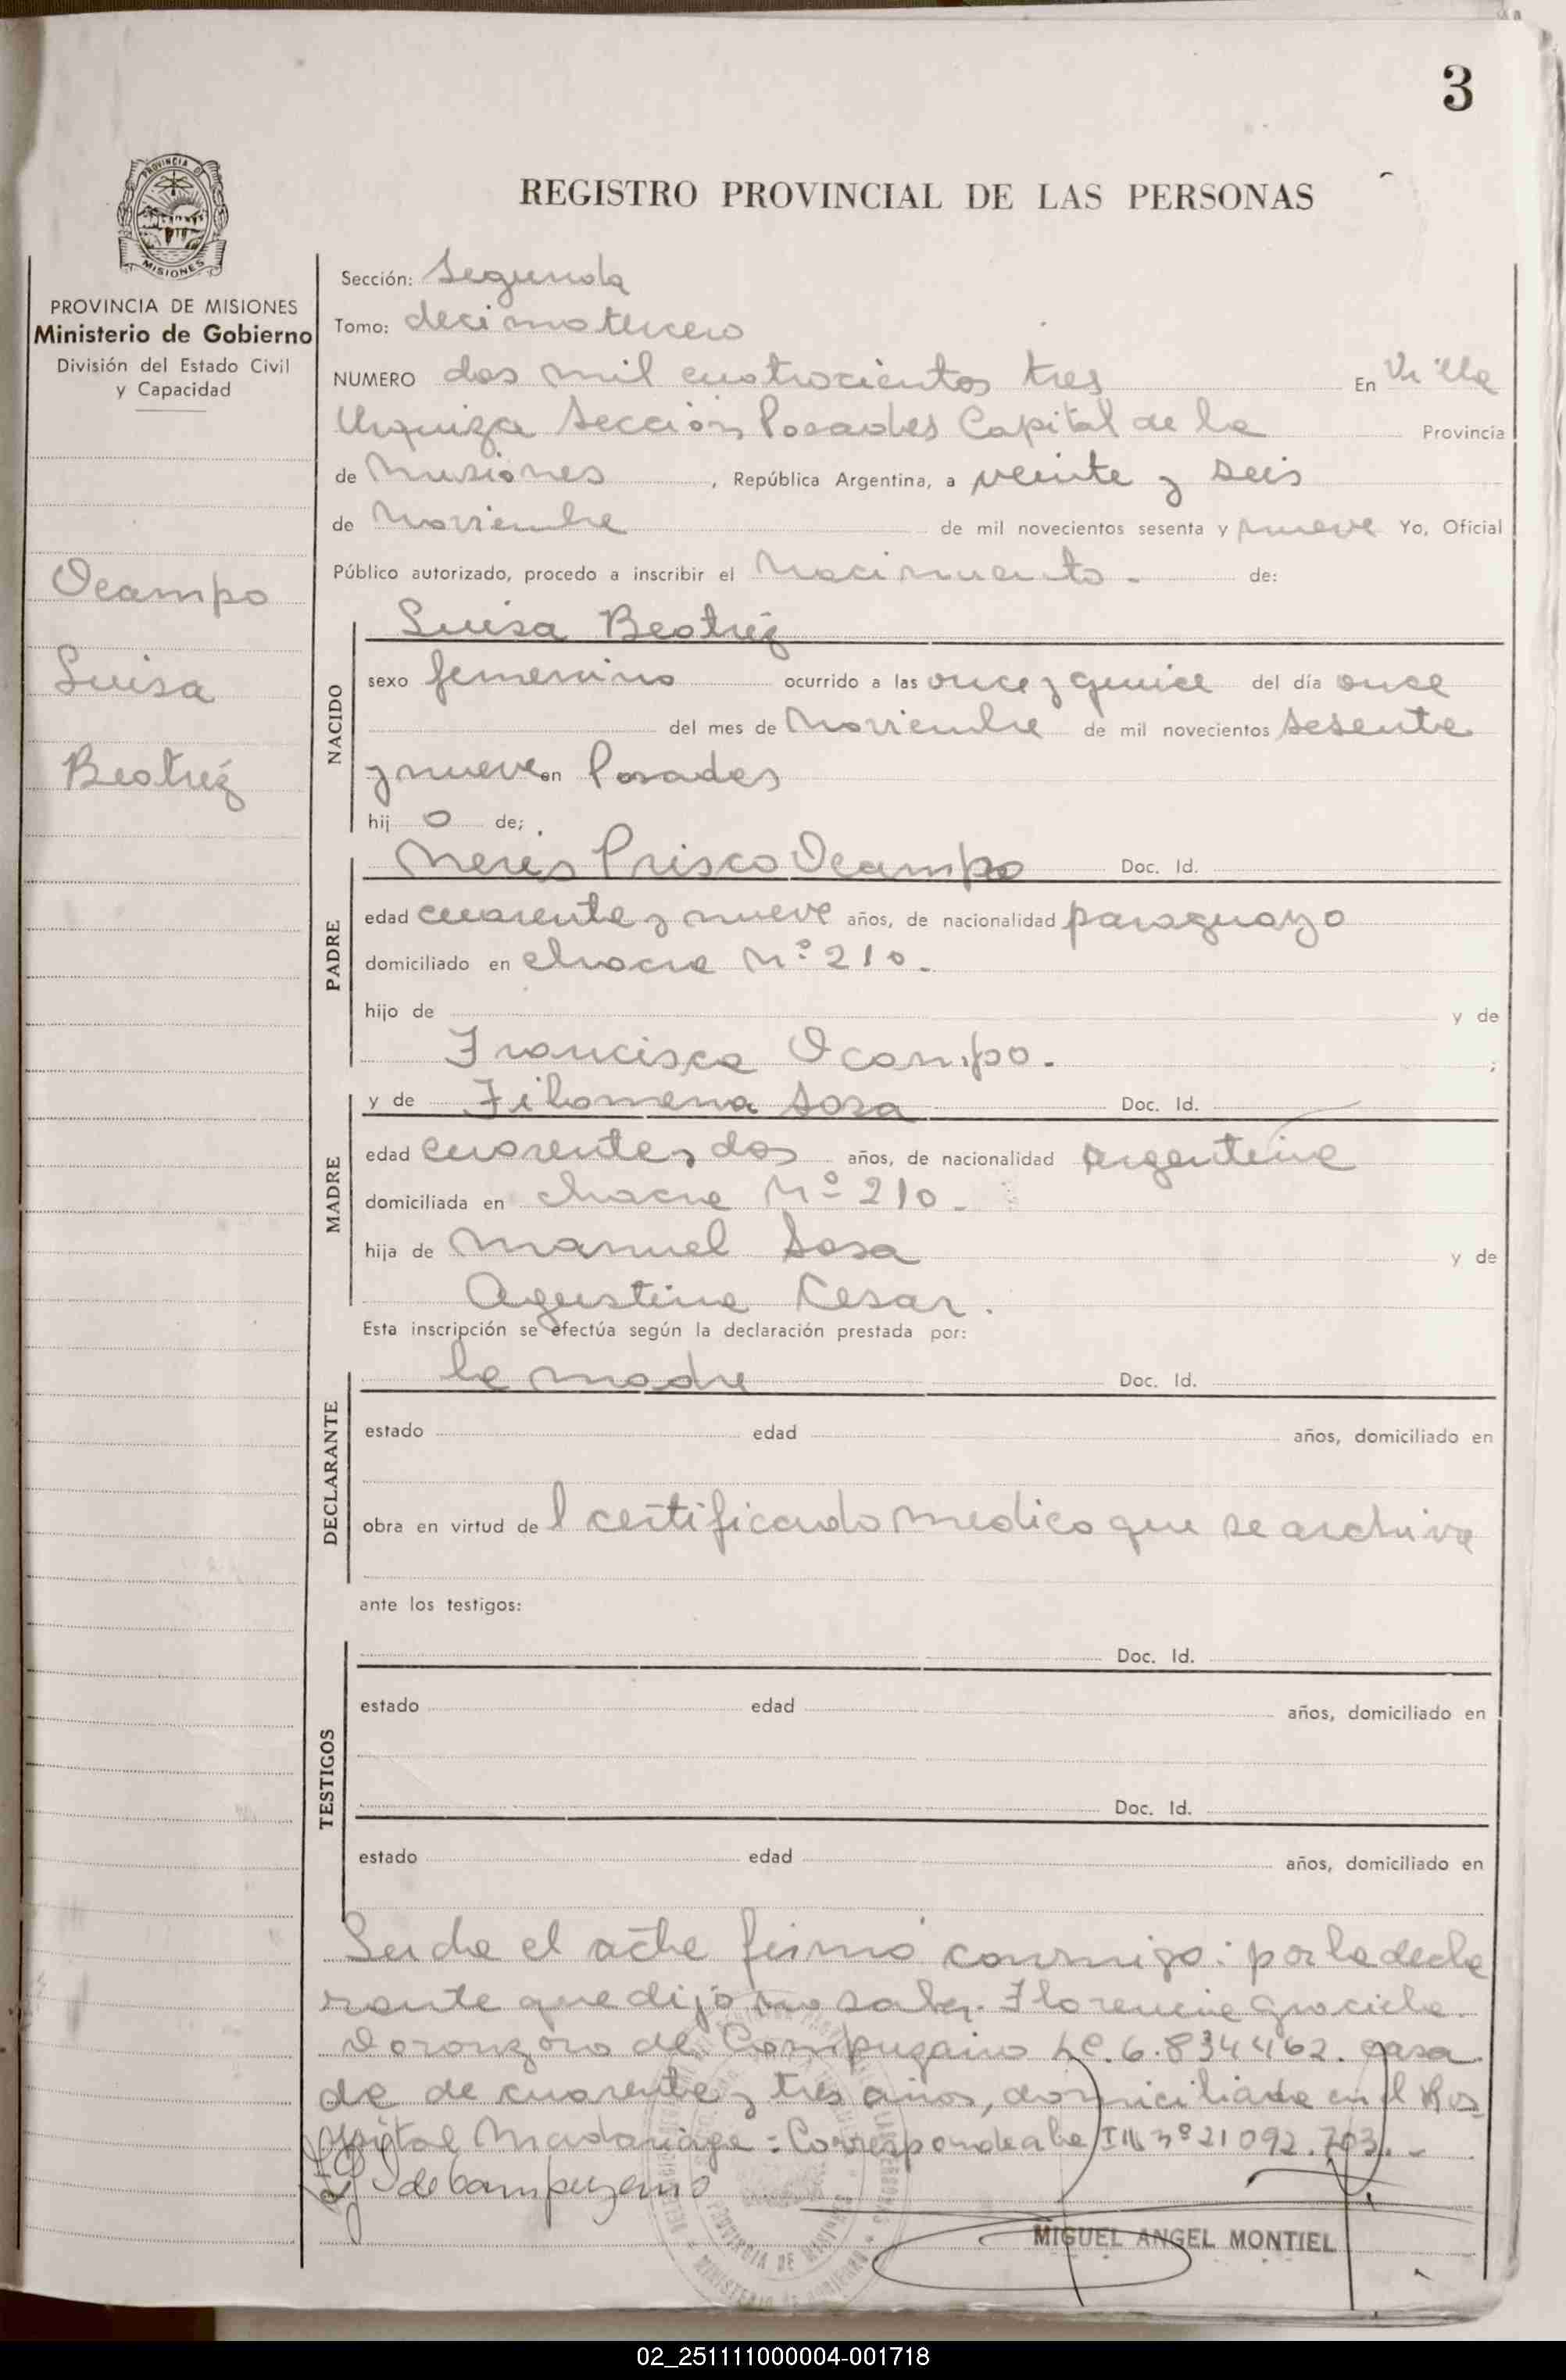 3
PROVINCIA DE
MISIONES
PROVINCIA DE MISIONES
Ministerio de Gobierno
División del Estado Civil
y Capacidad
Ocampo
Luisa
Beatriz
REGISTRO PROVINCIAL DE LAS PERSONAS
Sección: Segunda
Tomo: decimo tercero
NUMERO dos mil cuatrocientos tres En Villa
Urquiza Sección Posadas Capital de la Provincia
de Misiones, República Argentina, a veinte y seis
de Noviembre de mil novecientos sesenta y nueve Yo, Oficial
Público autorizado, procedo a inscribir el Nacimiento - de:
NACIDO
Luisa Beatriz
sexo femenino ocurrido a las once y quince del día once
del mes de Noviembre de mil novecientos sesenta
y nueve en Posadas
hij o de;
PADRE
Prisco Ocampo Doc. Id.
edad cuarenta y nueve años, de nacionalidad paraguayo
domiciliado en chacra Nº 210.
hijo de y de
Francisca Ocampo. ;
MADRE
y de Filomena Sosa Doc. Id.
edad cuarenta y dos años, de nacionalidad argentina
domiciliada en chacra Nº 210.
hija de Manuel Sosa y de
Agustina Cesar.
Esta inscripción se efectúa según la declaración prestada por:
DECLARANTE
la madre Doc. Id.
estado edad años, domiciliado en
obra en virtud de l certificado medico que se archiva
ante los testigos:
TESTIGOS
Doc. Id.
estado edad años, domiciliado en
Doc. Id.
estado edad años, domiciliado en
Leida el acta firmó conmigo: por la decla
rante que dijo no saber. Florencia Graciela
de Campuzano LC. 6.834462. casa
da de cuarenta y tres años, domiciliada en el Hos
pital Madariaga: Corresponde a la nº 21 092.703.-
de Campuzano
MIGUEL ANGEL MONTIEL
02_251111000004-001718